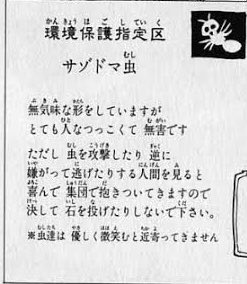 環境保護指定区
サゾドマ虫
無気味な形をしていますが
とても人なつっこくて 無害です
ただし 虫を攻撃したり 逆に
嫌がって逃げたりする人間を見ると
喜んで 集団で抱きついてきますので
決して 石を投げたりしないで下さい。
※虫達は 優しく微笑むと近寄ってきません